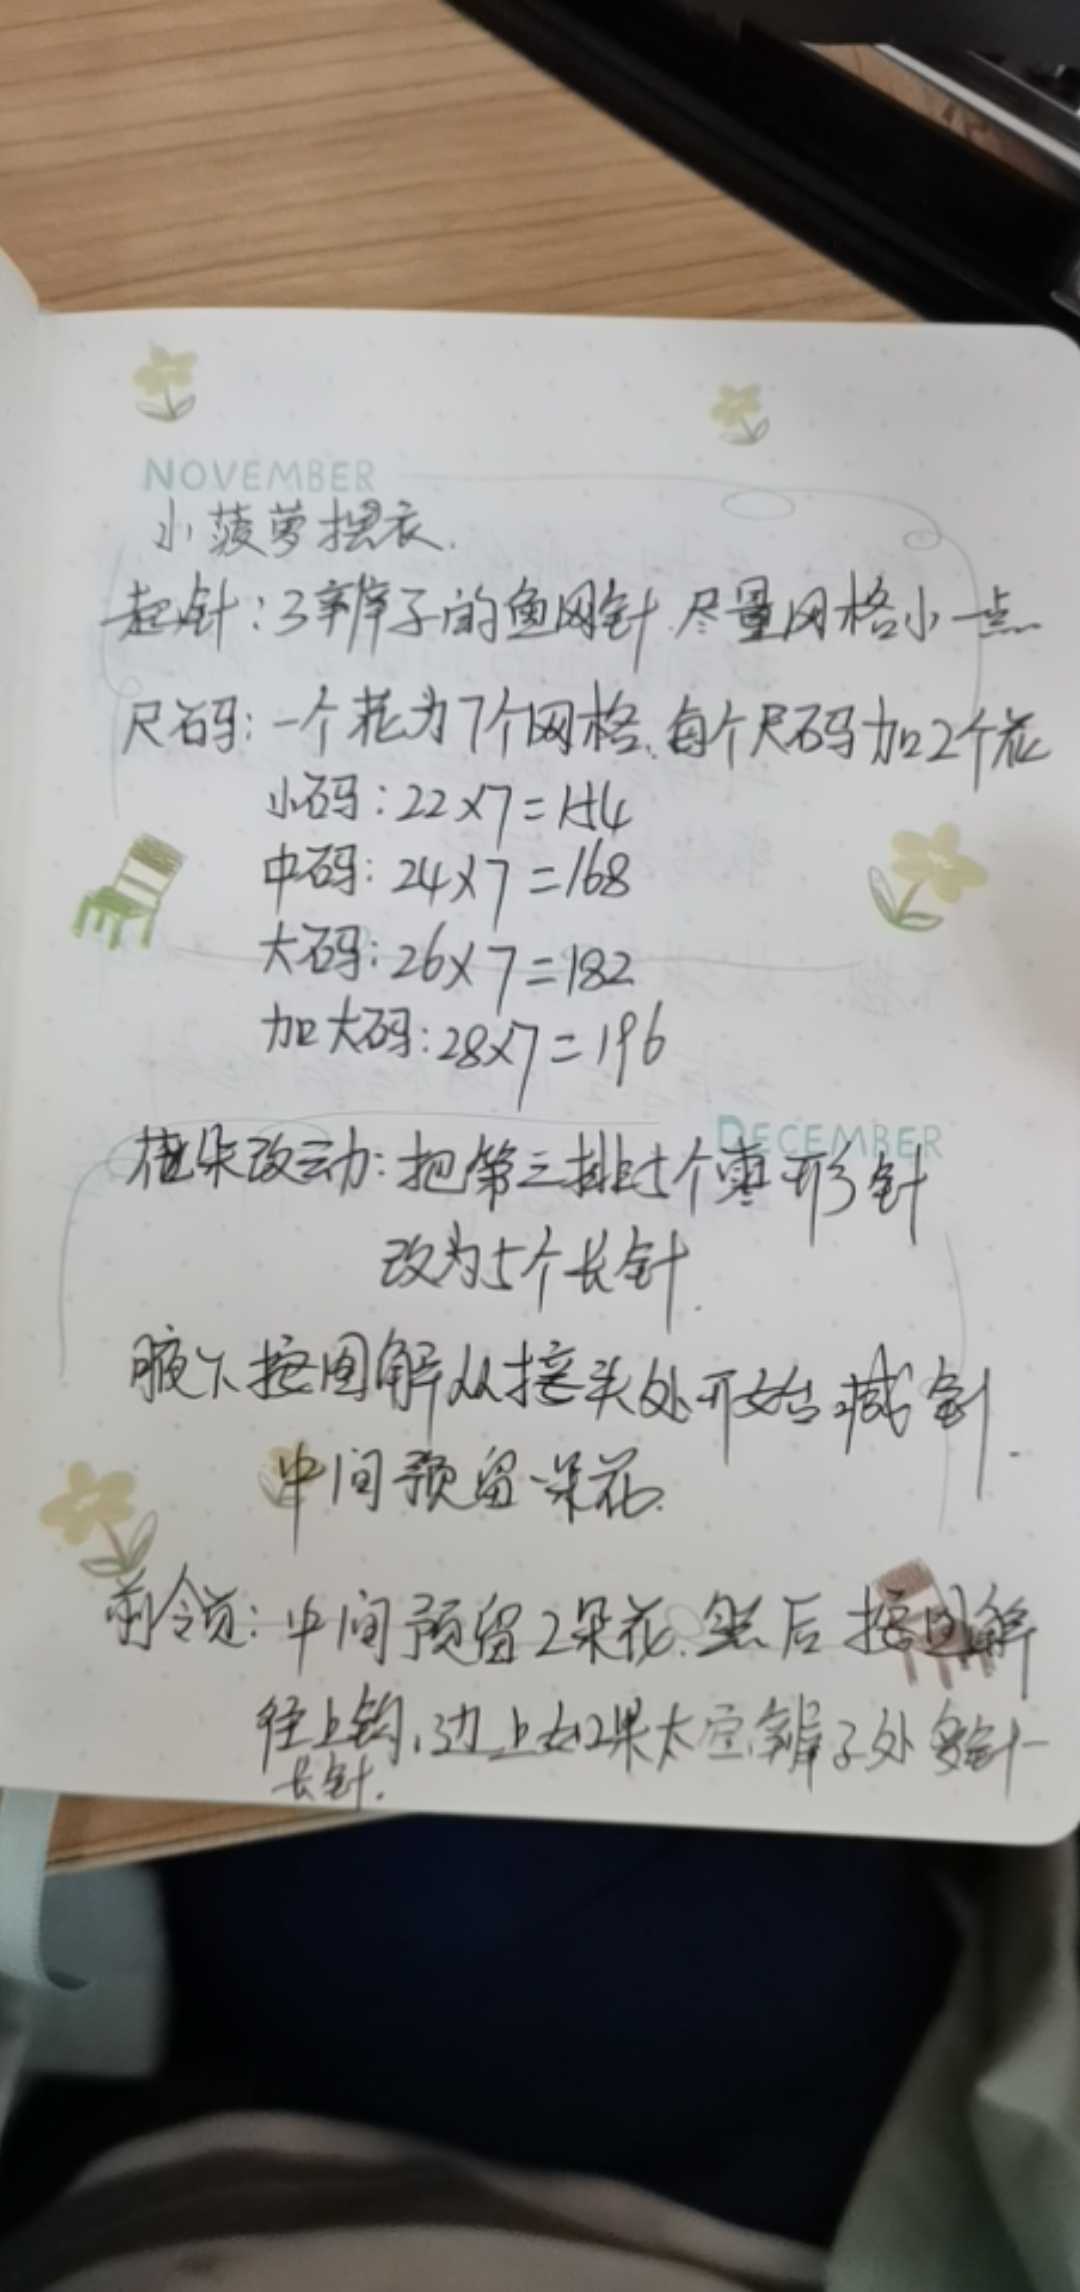 NOVEMBER
小菠萝摆衣.
起针:3辫子的鱼网针.尽量网格小一点
尺码:一个花为7个网格.每个尺码加2个花
小码:22×7=154
中码:24×7=168
大码:26×7=182
加大码:28×7=196
DECEMBER
花朵改动:把第三排5个枣形针
改为5个长针.
腋下按图解从接头处开始减针.
中间预留一朵花.
前领:中间预留2朵花.然后按图解
往上钩,边上如果太空辫子处多针一
长针.